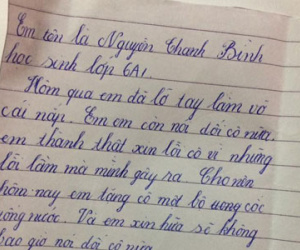 Em tên là Nguyễn Thanh Bình
học sinh lớp 6A1.
Hôm qua em đã lỡ tay làm vỡ
cái nắp. Em em còn nói dối cô nữa.
em thành thật xin lỗi cô vì những
lỗi lầm mà mình gây ra. Cho nên
hôm nay em tặng cô một bộ uống cốc
uống nước. Và em xin hứa sẽ không
bao giờ nói dối cô nữa